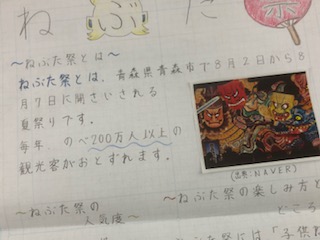 ねぶた
祭
～ねぶた祭とは～
ねぶた祭とは、青森県青森市で8月2日から8
月7日に開さいされる
夏祭りです。
毎年、のべ200万人以上の
観光客がおとずれます。
(出典:NAVER)
～ねぶた祭の
人気度～
～ねぶた祭の楽しみ方と
どころ
ねぶた祭には「子供ね